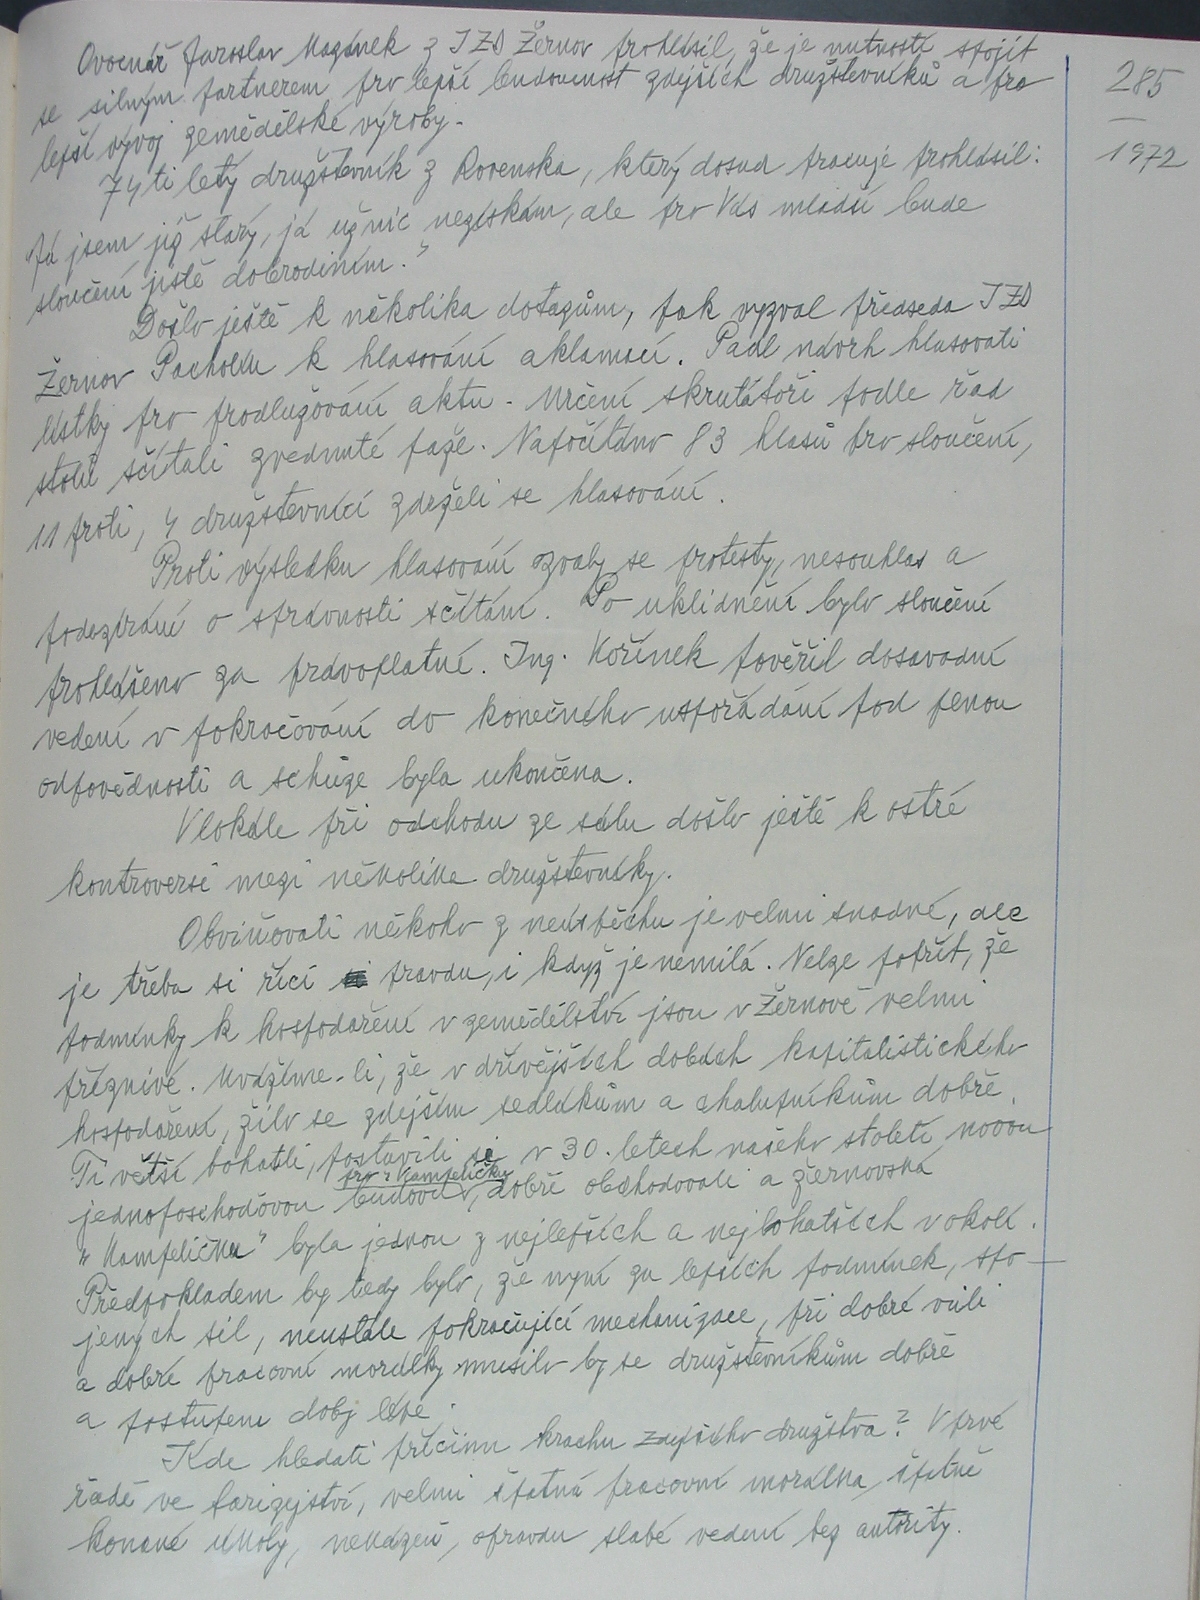 285
—
1972
Ovocnář Jaroslav Mazánek z JZD Žernov prohlásil, že je nutností spojit
se silným partnerem pro lepší budoucnost zdejších družstevníků a pro
lepší vývoj zemědělské výroby.
74 ti letý družstevník z Rovenska, který dosud pracuje prohlásil:
"Já jsem již starý, já už nic nezískám, ale pro Vás mladé bude
sloučení jistě dobrodiním."
Došlo ještě k několika dotazům, pak vyzval předseda JZD
Žernov Pacholík k hlasování aklamací. Padl návrh hlasovati
lístky pro prodlužování aktu. Určení skrutátoři podle řad
stolů sčítali zvednuté paže. Napočítáno 83 hlasů pro sloučení,
11 proti, 4 družstevníci zdrželi se hlasování.
Proti výsledku hlasování ozvaly se protesty, nesouhlas a
podezírání o správnosti sčítání. Po uklidnění bylo sloučení
prohlášeno za právoplatné. Ing. Kořínek pověřil dosavadní
vedení v pokračování do konečného uspořádání pod plnou
odpovědností a schůze byla ukončena.
V lokále při odchodu ze sálu došlo ještě k ostré
kontroversi mezi několika družstevníky.
Obviňovati někoho z neúspěchu je velmi snadné, ale
je třeba si říci pravdu, i když je nemilá. Nelze popřít, že
podmínky k hospodaření v zemědělství jsou v Žernově velmi
příznivé. Uvážíme-li, že v dřívějších dobách kapitalistického
hospodaření, žilo se zdejším sedlákům a chalupníkům dobře.
Ti větší bohatli, postavili si v 30. letech našeho století novou
jednoposchoďovou budovu pro "Kampeličku", dobře obchodovali a žernovská
"Kampelička" byla jednou z nejlepších a nejbohatších v okolí.
Předpokladem by tedy bylo, že nyní za lepších podmínek, spo-
jených sil, neustále pokračující mechanizace, při dobré vůli
a dobré pracovní morálky musilo by se družstevníkům dobře
a postupem doby lépe.
Kde hledati příčinu krachu zdejšího družstva? V prvé
řadě ve farizejství, velmi špatná pracovní morálka, špatně
konané úkoly, nekázeň, opravdu slabé vedení bez autority.